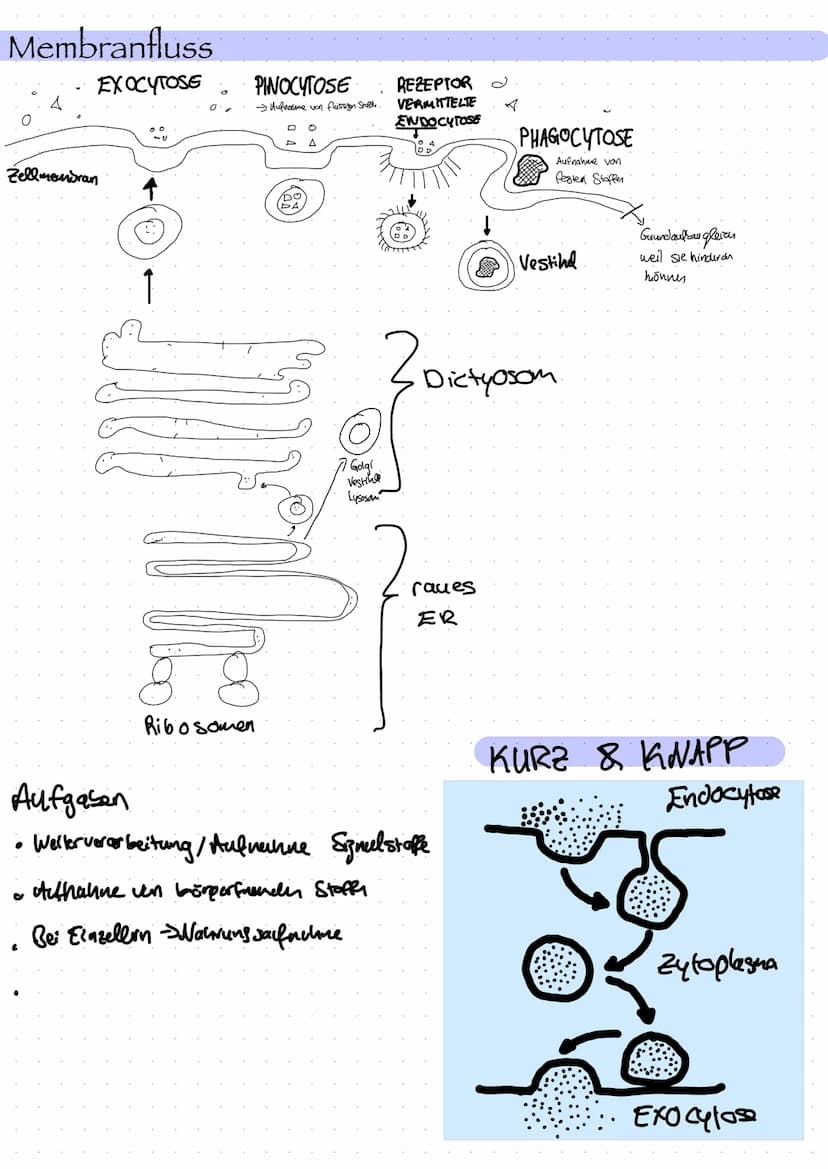 Membranfluss
EXOCYTOSE
PINOCYTOSE
→ Aufnahme von flüssigen Stoffen
REZEPTOR
VERMITTELTE
ENDOCYTOSE
PHAGOCYTOSE
Aufnahme von
festen Stoffen
Zellmembran
Grundaufbau gleich
weil sie
können
Vestikel
Dictyosom
Golgi
Vestikel
Lysosom
raues
ER
Ribosomen
KURZ & KNAPP
Aufgaben
• Weiterverarbeitung/Aufnahme
• Aufnahme von körperfremden Stoffen
• Bei Einzellern → Nahrungsaufnahme
•
Endocytose
Zytoplasma
EXOcytose